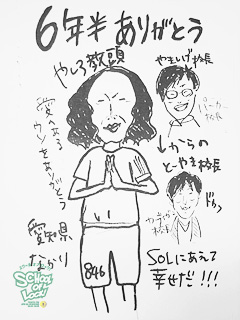 6年半ありがとう
やしろ教頭
やまじげ校長
パーカー
校長
愛のある
ウソをありがとう
↓からの
とーやま校長
愛知県
なかり
846
SOLにあえて
幸せだ!!!
SCHOOL
OF
LOCK!